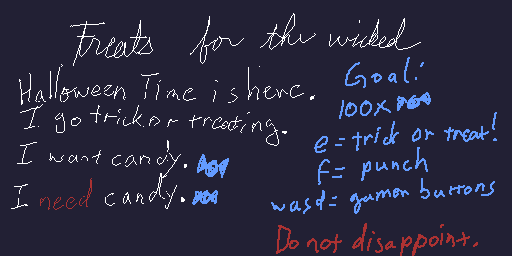 Treats for the wicked
Halloween Time is here.
I go trick or treating.
I want candy.
I need candy.
Goal:
100x
e = trick or treat!
f = punch
wasd = gamer buttons
Do not disappoint.